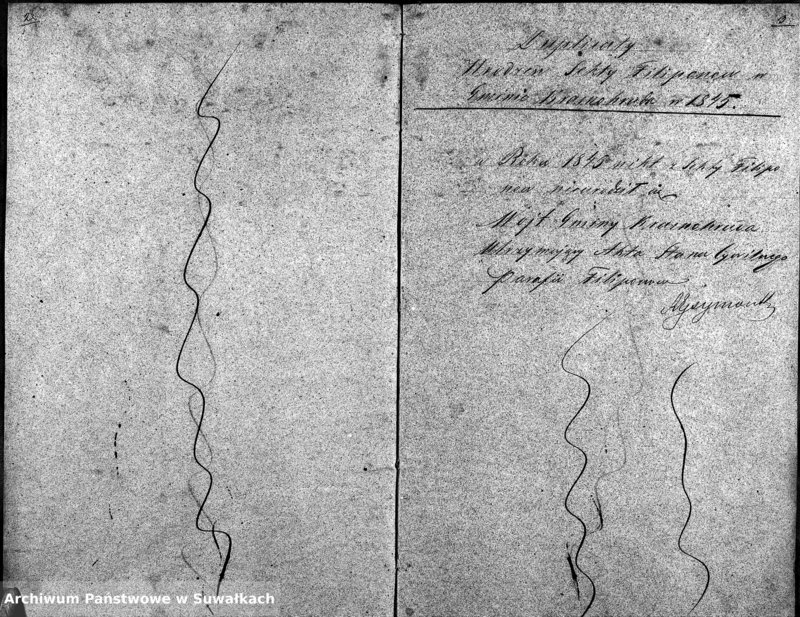 Duplikaty
Urodzin Sekty Filiponow w
Gminie Krasnohruda w 1845.
Roku 1845 nikt z Sekty Filipo
now nieurodził się
Wójt Gminy Krasnohruda
Utrzymujący Akta Stanu Cywilnego
Parafii Filiponow
Archiwum Państwowe w Suwałkach